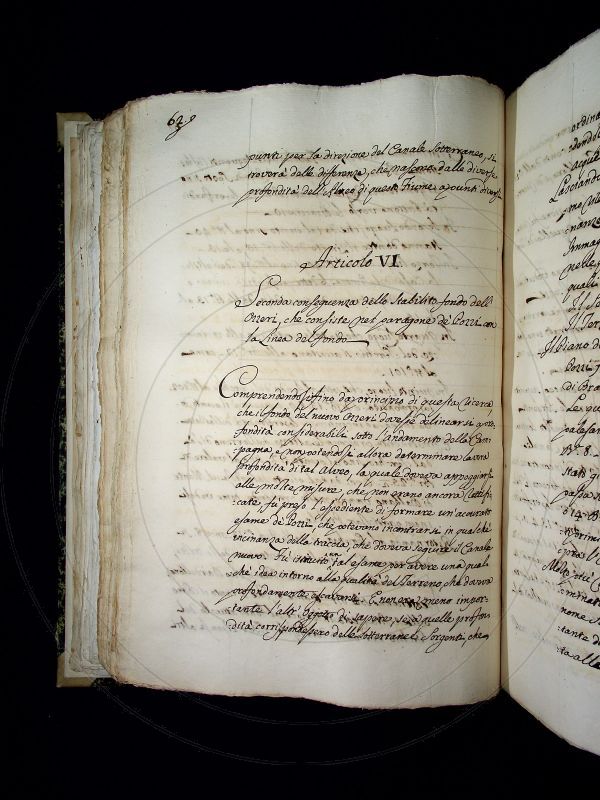 62.
punti per la direzione del Canale Sotterraneo, si
troverà delle differenze, che nascono dalle diverse
profondità dell'Alveo di questo Fiume a punti diversi
Articolo VI.
Seconda conseguenza dello stabilito fondo dell'
Ozzeri, che consiste nel paragone de' Pozzi con
la Linea del fondo
Comprendendosi fino da principio di questa
che il fondo del nuovo Ozzeri dovesse delinearsi a pro=
fondità considerabili sotto l'andamento della Cam=
pagna, e non potendosi allora determinare la vera
profondità di tal Alveo, la quale doveva appoggiarsi
alle molte misure, che non erano ancora
cate, fù preso l'espediente di formare un'accurato
esame de' Pozzi, che potevano incontrarsi in qualche
vicinanza della traccia, che doveva seguire il Canale
nuovo. Fù tal esame per avere una qual=
che idea intorno alla qualità del Terreno, che doveva
profondamente escavarsi. E non era meno impor=
tante l'altr' oggetto di sapere, se a quelle profon=
dità corrispondessero delle sotterranee Sorgenti, che
ordina
Lasciando
nanze
Immag
nelle
quali
Il Tor
Il Piano di
Pozzi
di Bra
Le qu
palesan
N.° 8.
stati
passa
614. B
opra l'
Molte
nome S
tante d
ta alla